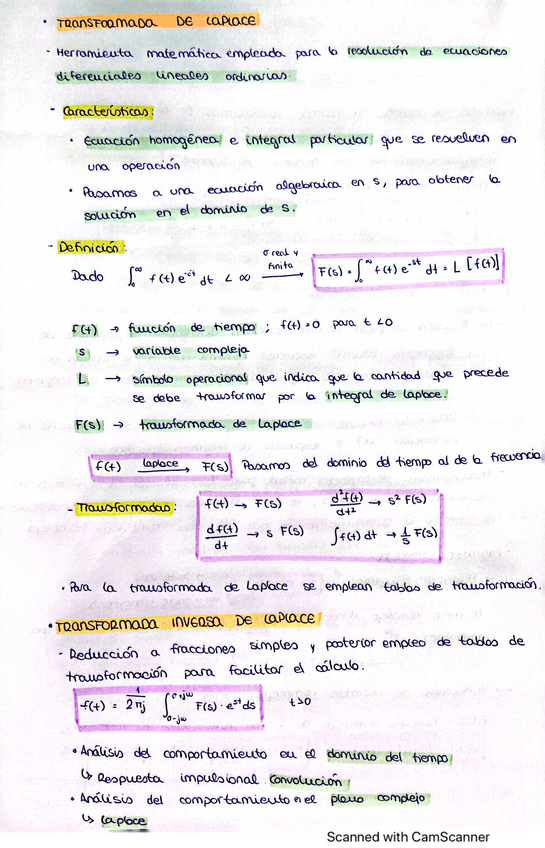 • TRANSFORMADA DE LAPLACE
- Herramienta matemática empleada para la resolución de ecuaciones
diferenciales lineales ordinarias.
- Características:
• Ecuación homogénea e integral particular que se resuelven en
una operación
• Pasamos a una ecuación algebraica en s, para obtener la
solución en el dominio de s.
- Definición:
Dado ∫₀^∞ f(t) e^-σt dt < ∞ → σ real y finita F(s) = ∫₀^∞ f(t) e^-st dt = L [f(t)]
f(t) → función de tiempo ; f(t)=0 para t<0
s → variable compleja
L → símbolo operacional que indica que la cantidad que precede
se debe transformar por la integral de Laplace.
F(s) → transformada de Laplace
f(t) laplace → F(s) Pasamos del dominio del tiempo al de la frecuencia
- Transformadas: f(t) → F(s) d²f(t)/dt² → s² F(s)
df(t)/dt → s F(s) ∫f(t) dt → 1/s F(s)
• Para la transformada de Laplace se emplean tablas de transformación.
• TRANSFORMADA INVERSA DE LAPLACE
- Reducción a fracciones simples y posterior empleo de tablas de
transformación para facilitar el cálculo.
f(t) = 1/2πj ∫ F(s) · e^st ds t>0
• Análisis del comportamiento en el dominio del tiempo
↳ Respuesta impulsional Convolución
• Análisis del comportamiento en el plano complejo
↳ Laplace
Scanned with CamScanner